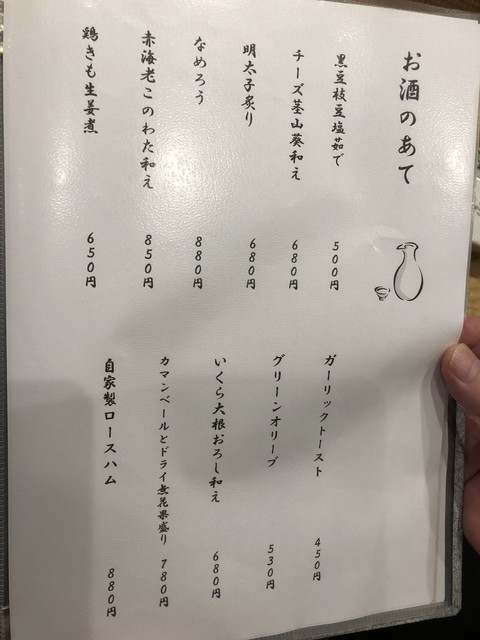 お酒のあて
黒豆枝豆塩茹で 500円
チーズ茎山葵和え 680円
明太子炙り 680円
なめろう 880円
赤海老このわた和え 850円
鶏きも生姜煮 650円
ガーリックトースト 450円
グリーンオリーブ 530円
いくら大根おろし和え 680円
カマンベールとドライ無花果盛り 780円
自家製ロースハム 880円